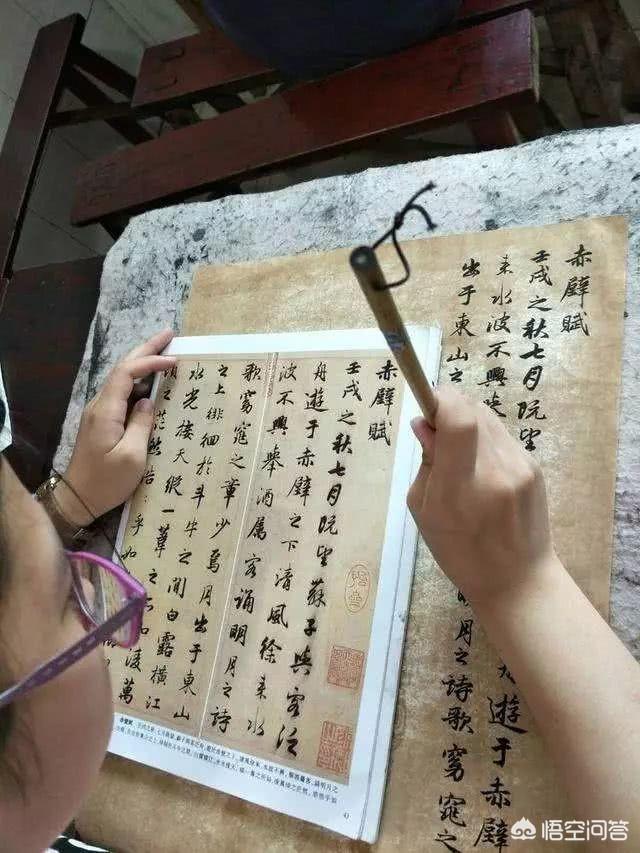 赤壁賦
壬戌之秋七月既望
遊于赤壁
來水波不興
明月之詩歌窈窕之
出于東山之
赤壁賦
壬戌之秋七月既望蘇子與客泛
舟遊于赤壁之下清風徐來水
波不興舉酒屬客誦明月之詩
歌窈窕之章少焉月出于東山
之上徘徊於斗牛之間白露橫江
水光接天縱一葦之所如凌萬
頃之茫然浩〻乎如
悟空问答